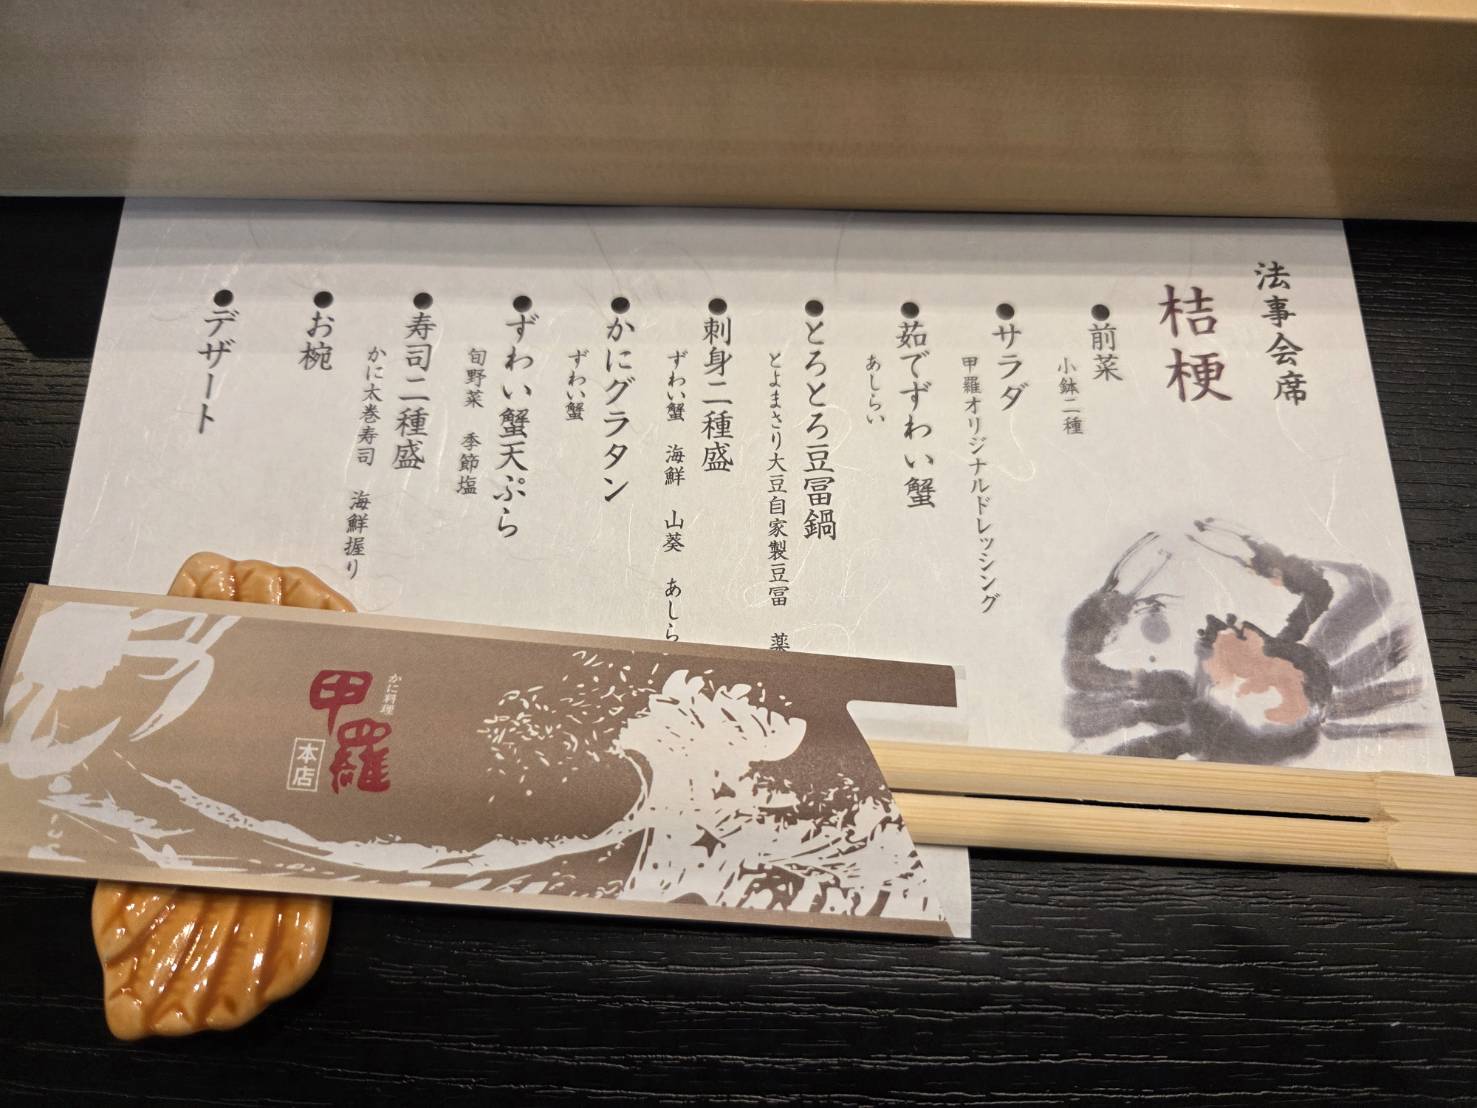 法事会席
桔梗
●前菜
小鉢二種
●サラダ
甲羅オリジナルドレッシング
●茹でずわい蟹
あしらい
●とろとろ豆冨鍋
とよまさり大豆自家製豆冨 薬
●刺身二種盛
ずわい蟹 海鮮 山葵 あしら
●かにグラタン
ずわい蟹
●ずわい蟹天ぷら
旬野菜 季節塩
●寿司二種盛
かに太巻寿司 海鮮握り
●お椀
●デザート
かに料理
甲羅
本店